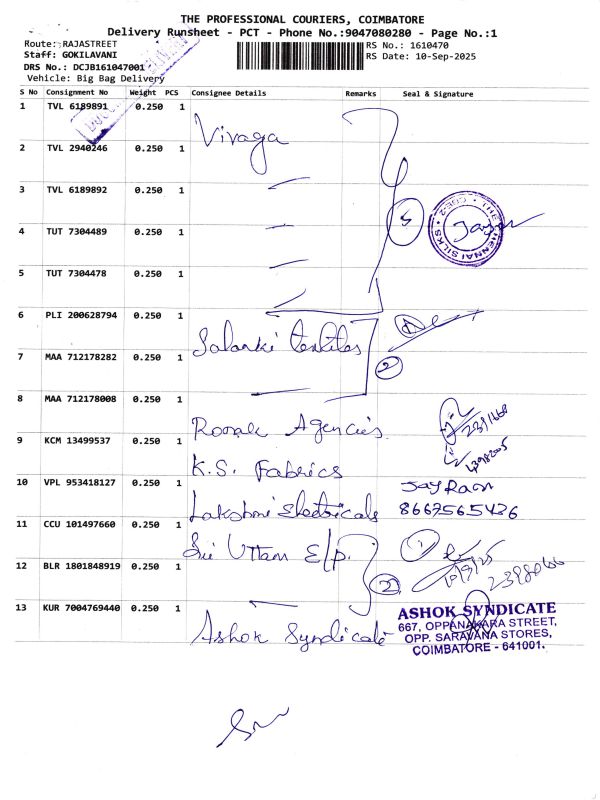 THE PROFESSIONAL COURIERS, COIMBATORE
Delivery Runsheet - PCT - Phone No.:9047080280 - Page No.:1
Route: RAJASTREET
RS No.: 1610470
Staff: GOKILAVANI
RS Date: 10-Sep-2025
DRS No.: DCJB161047001
Vehicle: Big Bag Delivery
S No Consignment No Weight PCS Consignee Details Remarks Seal & Signature
1 TVL 6189891 0.250 1 Vivaga
2 TVL 2940246 0.250 1
3 TVL 6189892 0.250 1
4 TUT 7304489 0.250 1 5
5 TUT 7304478 0.250 1
6 PLI 200628794 0.250 1
7 MAA 712178282 0.250 1 2
8 MAA 712178008 0.250 1 Roonak Agencies
9 KCM 13499537 0.250 1 K.S. Fabrics
10 VPL 953418127 0.250 1 Lakshmi Electricals Jay Ram
8667565426
11 CCU 101497660 0.250 1 Sri Uttam E/p.
12 BLR 1801848919 0.250 1 2
13 KUR 7004769440 0.250 1 Ashok Syndicate
ASHOK SYNDICATE
667, OPPANAKARA STREET,
OPP. SARAVANA STORES,
COIMBATORE - 641001.